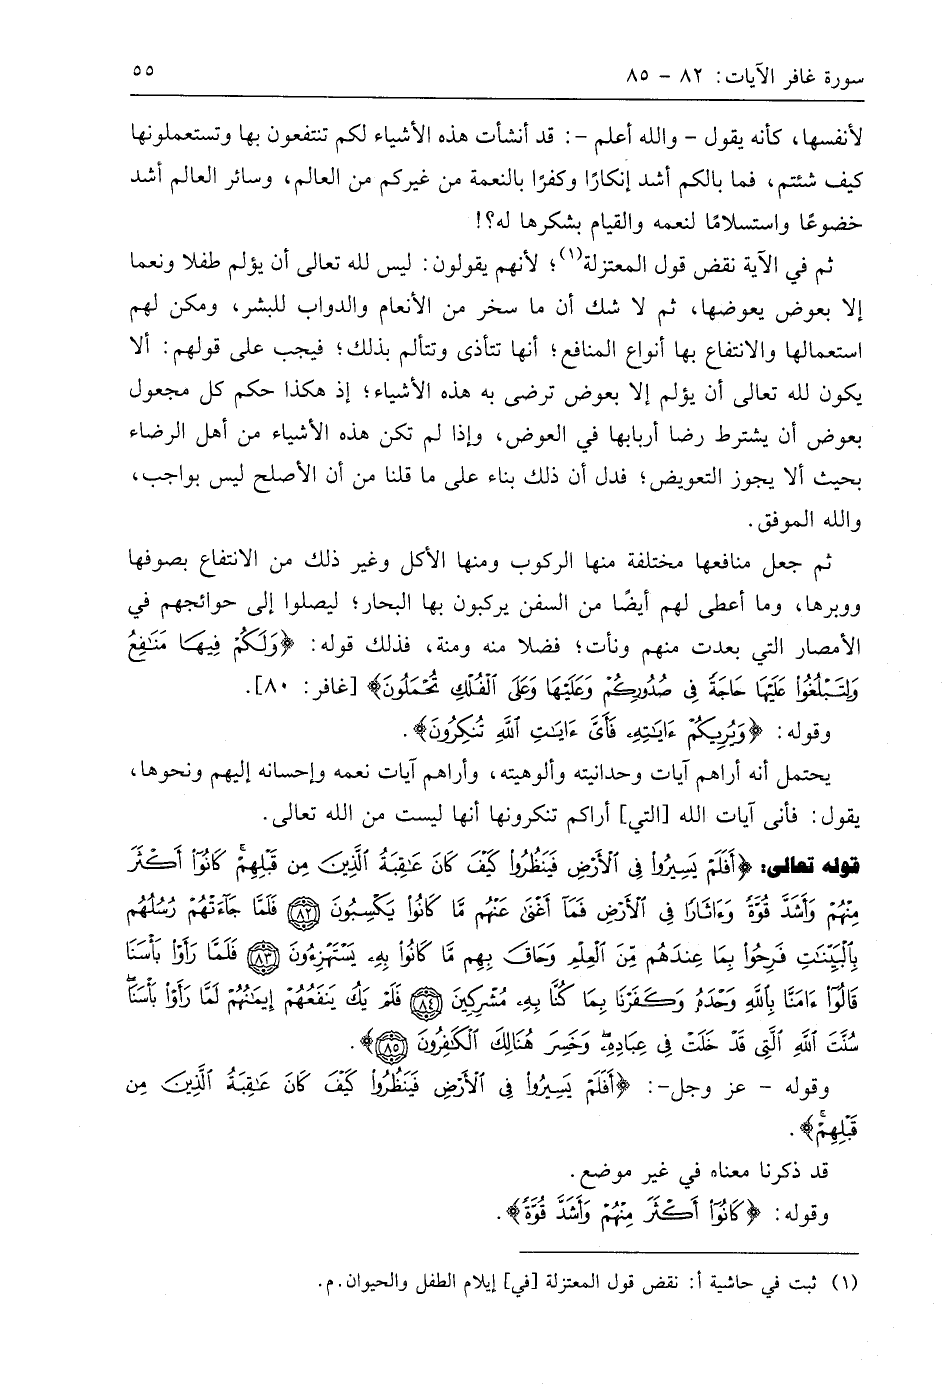 سورة غافر الآيات: ٨٢ - ٨٥ ٥٥
لأنفسها، كأنه يقول - والله أعلم -: قد أنشأت هذه الأشياء لكم تنتفعون بها وتستعملونها
كيف شئتم، فما بالكم أشد إنكارًا وكفرًا بالنعمة من غيركم من العالم، وسائر العالم أشد
خضوعًا واستسلامًا لنعمه والقيام بشكرها له؟!
ثم في الآية نقض قول المعتزلة(١)؛ لأنهم يقولون: ليس لله تعالى أن يؤلم طفلا ونعما
إلا بعوض يعوضها، ثم لا شك أن ما سخر من الأنعام والدواب للبشر، ومكن لهم
استعمالها والانتفاع بها أنواع المنافع؛ أنها تتأذى وتتألم بذلك؛ فيجب على قولهم: ألا
يكون لله تعالى أن يؤلم إلا بعوض ترضى به هذه الأشياء؛ إذ هكذا حكم كل مجعول
بعوض أن يشترط رضا أربابها في العوض، وإذا لم تكن هذه الأشياء من أهل الرضاء
بحيث ألا يجوز التعويض؛ فدل أن ذلك بناء على ما قلنا من أن الأصلح ليس بواجب،
والله الموفق.
ثم جعل منافعها مختلفة منها الركوب ومنها الأكل وغير ذلك من الانتفاع بصوفها
ووبرها، وما أعطى لهم أيضًا من السفن يركبون بها البحار؛ ليصلوا إلى حوائجهم في
الأمصار التي بعدت منهم ونأت؛ فضلا منه ومنة، فذلك قوله: ﴿وَلَكُمْ فِيهَا مَنَٰفِعُ
وَلِتَبْلُغُوا۟ عَلَيْهَا حَاجَةً فِى صُدُورِكُمْ وَعَلَيْهَا وَعَلَى ٱلْفُلْكِ تُحْمَلُونَ﴾ [غافر: ٨٠].
وقوله: ﴿وَيُرِيكُمْ ءَايَٰتِهِۦ فَأَىَّ ءَايَٰتِ ٱللَّهِ تُنكِرُونَ﴾.
يحتمل أنه أراهم آيات وحدانيته وألوهيته، وأراهم آيات نعمه وإحسانه إليهم ونحوها،
يقول: فأنى آيات الله [التي] أراكم تنكرونها أنها ليست من الله تعالى.
قوله تعالى: ﴿أَفَلَمْ يَسِيرُوا۟ فِى ٱلْأَرْضِ فَيَنظُرُوا۟ كَيْفَ كَانَ عَٰقِبَةُ ٱلَّذِينَ مِن قَبْلِهِمْ ۚ كَانُوٓا۟ أَكْثَرَ
مِنْهُمْ وَأَشَدَّ قُوَّةً وَءَاثَارًا فِى ٱلْأَرْضِ فَمَآ أَغْنَىٰ عَنْهُم مَّا كَانُوا۟ يَكْسِبُونَ ٨٢ فَلَمَّا جَآءَتْهُمْ رُسُلُهُم
بِٱلْبَيِّنَٰتِ فَرِحُوا۟ بِمَا عِندَهُم مِّنَ ٱلْعِلْمِ وَحَاقَ بِهِم مَّا كَانُوا۟ بِهِۦ يَسْتَهْزِءُونَ ٨٣ فَلَمَّا رَأَوْا۟ بَأْسَنَا
قَالُوٓا۟ ءَامَنَّا بِٱللَّهِ وَحْدَهُۥ وَكَفَرْنَا بِمَا كُنَّا بِهِۦ مُشْرِكِينَ ٨٤ فَلَمْ يَكُ يَنفَعُهُمْ إِيمَٰنُهُمْ لَمَّا رَأَوْا۟ بَأْسَنَا ۖ
سُنَّتَ ٱللَّهِ ٱلَّتِى قَدْ خَلَتْ فِى عِبَادِهِۦ ۖ وَخَسِرَ هُنَالِكَ ٱلْكَٰفِرُونَ ٨٥﴾.
وقوله - عز وجل-: ﴿أَفَلَمْ يَسِيرُوا۟ فِى ٱلْأَرْضِ فَيَنظُرُوا۟ كَيْفَ كَانَ عَٰقِبَةُ ٱلَّذِينَ مِن
قَبْلِهِمْ ۚ﴾.
قد ذكرنا معناه في غير موضع.
وقوله: ﴿كَانُوٓا۟ أَكْثَرَ مِنْهُمْ وَأَشَدَّ قُوَّةً﴾.
(١) ثبت في حاشية أ: نقض قول المعتزلة [في] إيلام الطفل والحيوان.م.